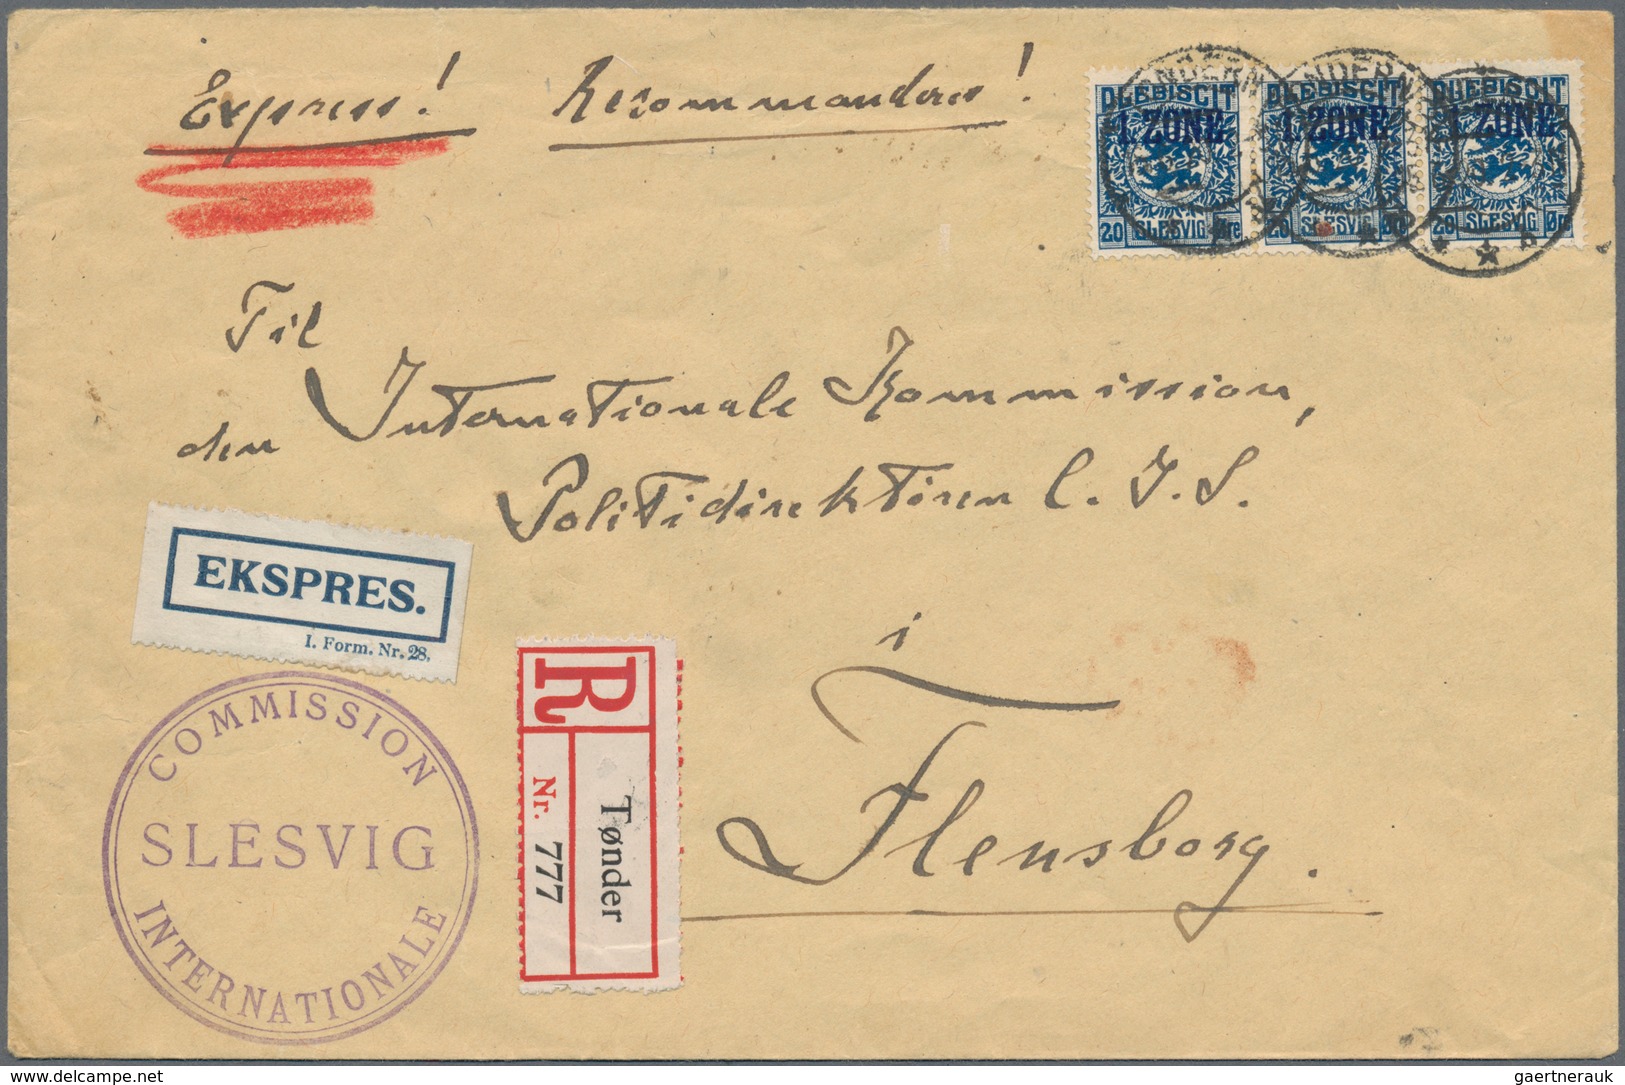 Express! Recommanderes!
PLEBISCIT PLEBISCIT PLEBISCIT
1. ZONE 1. ZONE 1. ZONE
20 SLESVIG Øre 20 SLESVIG Øre 20 SLESVIG Øre
TONDERN TONDERN
Til
den Internationale Kommission,
Politidirektören C. I. S.
i
Flensborg.
EKSPRES.
I. Form. Nr. 28.
R
Tønder
Nr. 777
COMMISSION
SLESVIG
INTERNATIONALE
www.delcampe.net
gaertnerauk